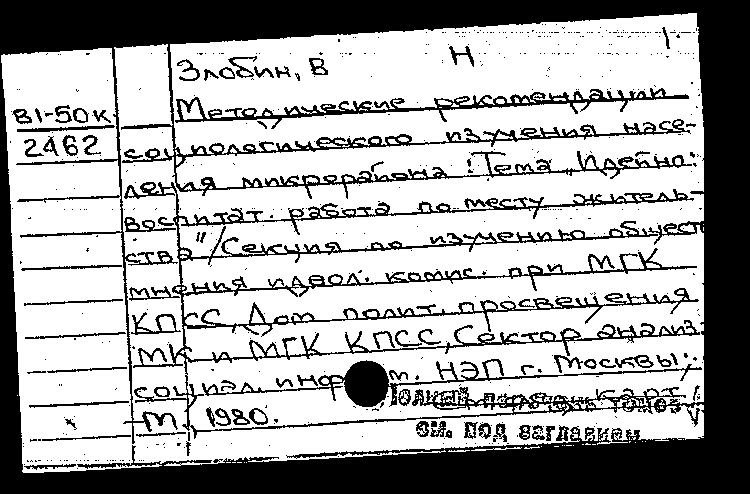 Злобин, В Н 1.
В1-50к Методические рекомендации
2462 социологического изучения насе-
ления микрорайона: Тема „Идейно-
воспитат. работа по месту житель-
ства"/Секция по изучению обществ
мнения идеол. комис. при МГК
КПСС, Дом полит. просвещения
МК и МГК КПСС, Сектор анализ.
социал. информ. НЭП г. Москвы;
М., 1980.
Полный перечень томов
см. под заглавием